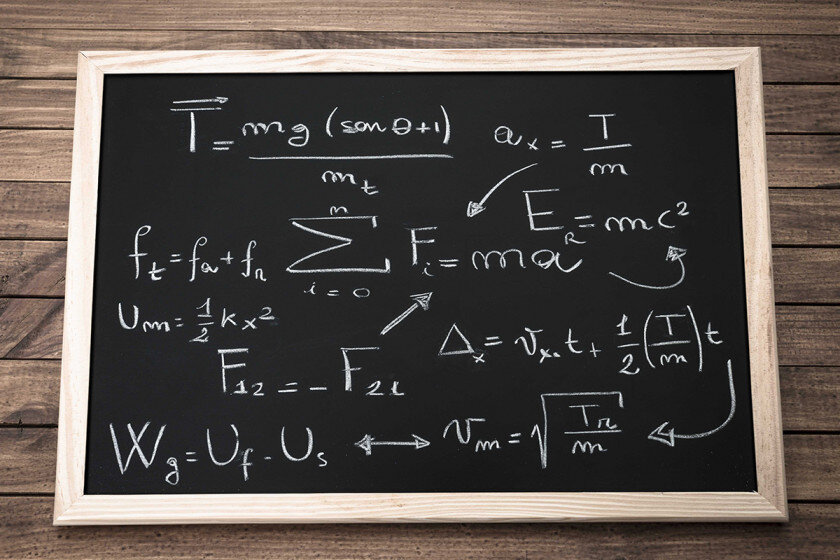 T = mg (sen θ+1) / m_t
a_x = T / m
E_R = mc²
f_t = f_a + f_r
n Σ i=0 F_i = ma_R
U_m = 1/2 kx²
Δ_x = v_x. t + 1/2 (T/m) t
F_12 = - F_21
W_g = U_f - U_s
v_m = √(Tr/m)